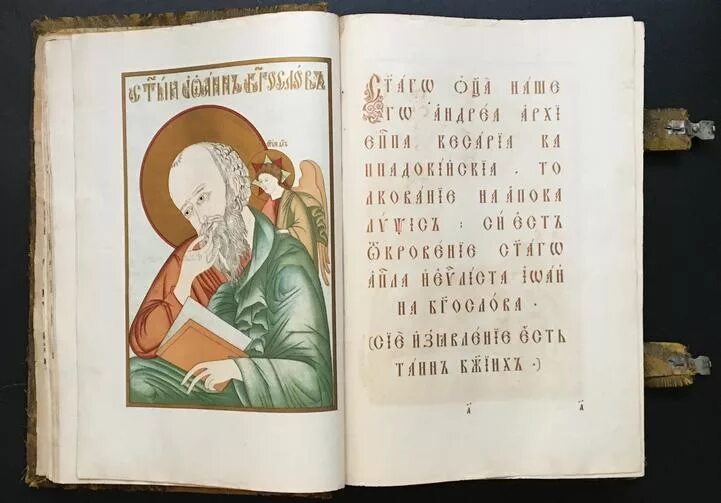 С҃ТЫИ ІѠА́ННЪ Б҃ГОСЛО́ВЪ
С҃ТА́ГѠ ѺЦ҃А̀ НА́ШЕ
ГѠ А҆НДРЕ́А А҆РХІ
ЕП҃ПА КЕСАРІ́А КА
ППАДОКІ́ЙСКІѦ . ТО
ЛКОВА́НІЕ НА А҆ПОКА
ЛѴ́ѰІСЪ : СЍ Е҆́СТЬ
Ѿ҆КРОВЕ́НІЕ С҃ТА́ГѠ
А҆П҃ЛА И҆ Е҆ѴЛІ́СТА І҆ѠА́Н
НА Б҃ГОСЛО́ВА .
(СІЀ И҆З̾ѦВЛЕ́НІЕ Е҆́СТЬ
ТА́ИНЪ Б҃ЖІИХЪ .)
а҃ а҃